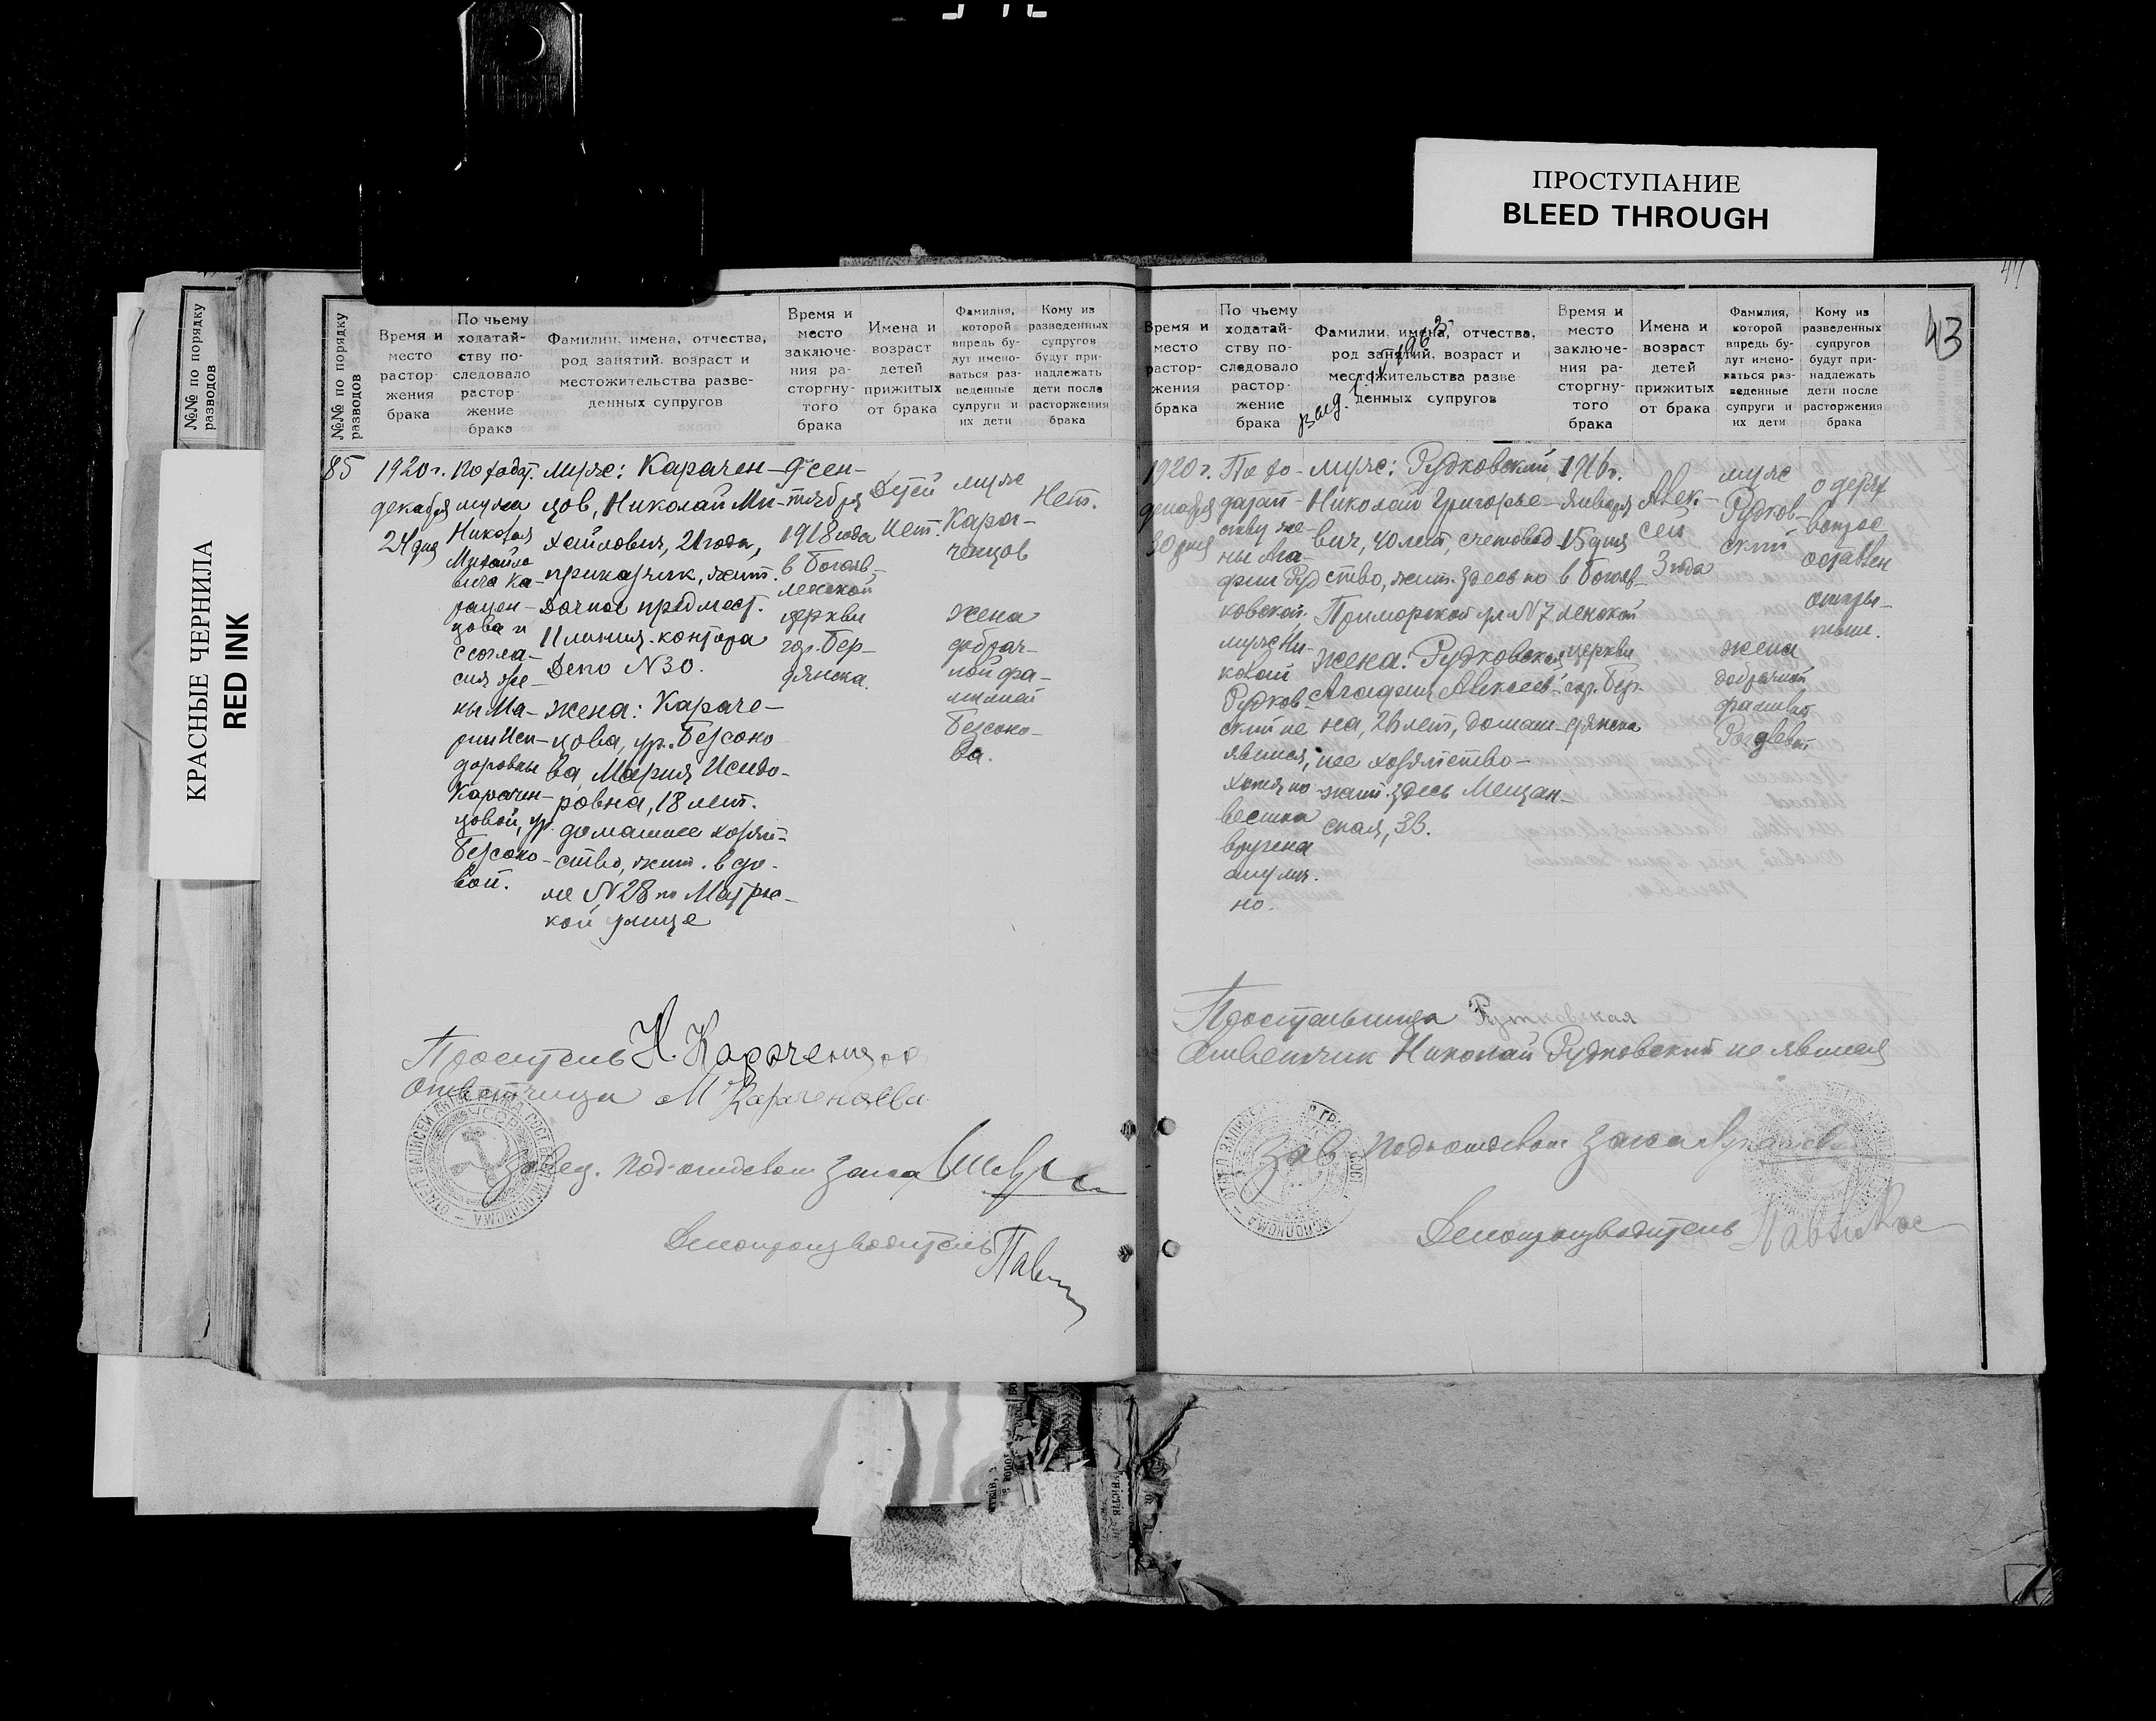 ПРОСТУПАНИЕ
BLEED THROUGH
КРАСНЫЕ ЧЕРНИЛА
RED INK
№№ по порядку
разводов
№№ по порядку
разводов
Время и
место
растор-
жения
брака
По чьему
ходатай-
ству по-
следовало
растор-
жение
брака
Фамилии, имена, отчества,
род занятий, возраст и
местожительства разве-
денных супругов
Время и
место
заключе-
ния ра-
сторгну-
того
брака
Имена и
возраст
детей
прижитых
от брака
Фамилия,
которой
впредь бу-
дут имено-
ваться раз-
веденные
супруги и
их дети
Кому из
разведенных
супругов
будут при-
надлежать
дети после
расторжения
брака
85
1920 г.
декабря
24 дня
по ходат.
мужа
Николая
Михайло
вича Ка-
рачен-
цова и
с согла-
сия же-
ны Ма-
рии Иси-
доровны
Карачен-
цовой, ур.
Безсоко-
вой.
муже: Карачен-
цов, Николай Ми-
хайлович, 21 года,
приказчик, жит.
Дачное предмест.
II линия. контора
Депо N 30.
жена: Караче-
цова, ур. Безсоко
ва, Мария Исидо-
ровна, 18 лет.
домашнее хозяй-
ство, жит. в до-
ме N 28 по
кой улице
9 сен-
тября
1918 года
в Богояв-
ленской
церкви
гор. Бер-
дянска.
Детей
Нет.
муже
Кара-
ченцов
жена
добрач-
ной фа-
милией
Безсоко-
ва.
Нет.
Проситель Н. Караченцов
Ответчица М Караченцева
Завед. Под-отделом Загса
Делопроизводитель Павл
44
43
Время и
место
растор-
жения
брака
По чьему
ходатай-
ству по-
следовало
растор-
жение
брака
Фамилии, имена, отчества,
род занятий, возраст и
местожительства разве
денных супругов
Время и
место
заключе-
ния ра-
сторгну-
того
брака
Имена и
возраст
детей
прижитых
от брака
Фамилия,
которой
впредь бу-
дут имено-
ваться раз-
веденные
супруги и
их дети
Кому из
разведенных
супругов
будут при-
надлежать
дети после
расторжения
брака
1920 г.
декабря
30 дня
По хо-
датай-
ству же-
ны Ага-
фии Руд
ковской.
муже Ни-
колай
Рудков-
ский не
явился,
хотя по-
вестка
вручена
но.
муже: Рудковский
Николай Григорье-
вич, 40 лет, счетовод-
ство, жит. здесь по
Приморской ул N 7
жена: Рудковская
Агафия Алексеев-
на, 26 лет, домаш-
нее хозяйство-
жит. здесь Мещан-
ская, 33.
1916 г.
января
15 дня
в Богояв-
ленской
церкви
гор. Бер-
дянска
Алек-
сей
3 года
муже
Рудков-
ский
жена
добрачной
фамилией
о детях
вопрос
оставлен
откры-
тым.
Просительница Рутковская
Ответчик Николай Рудковский не явился
Зав Подотделом Загса
Делопроизводитель Павлов